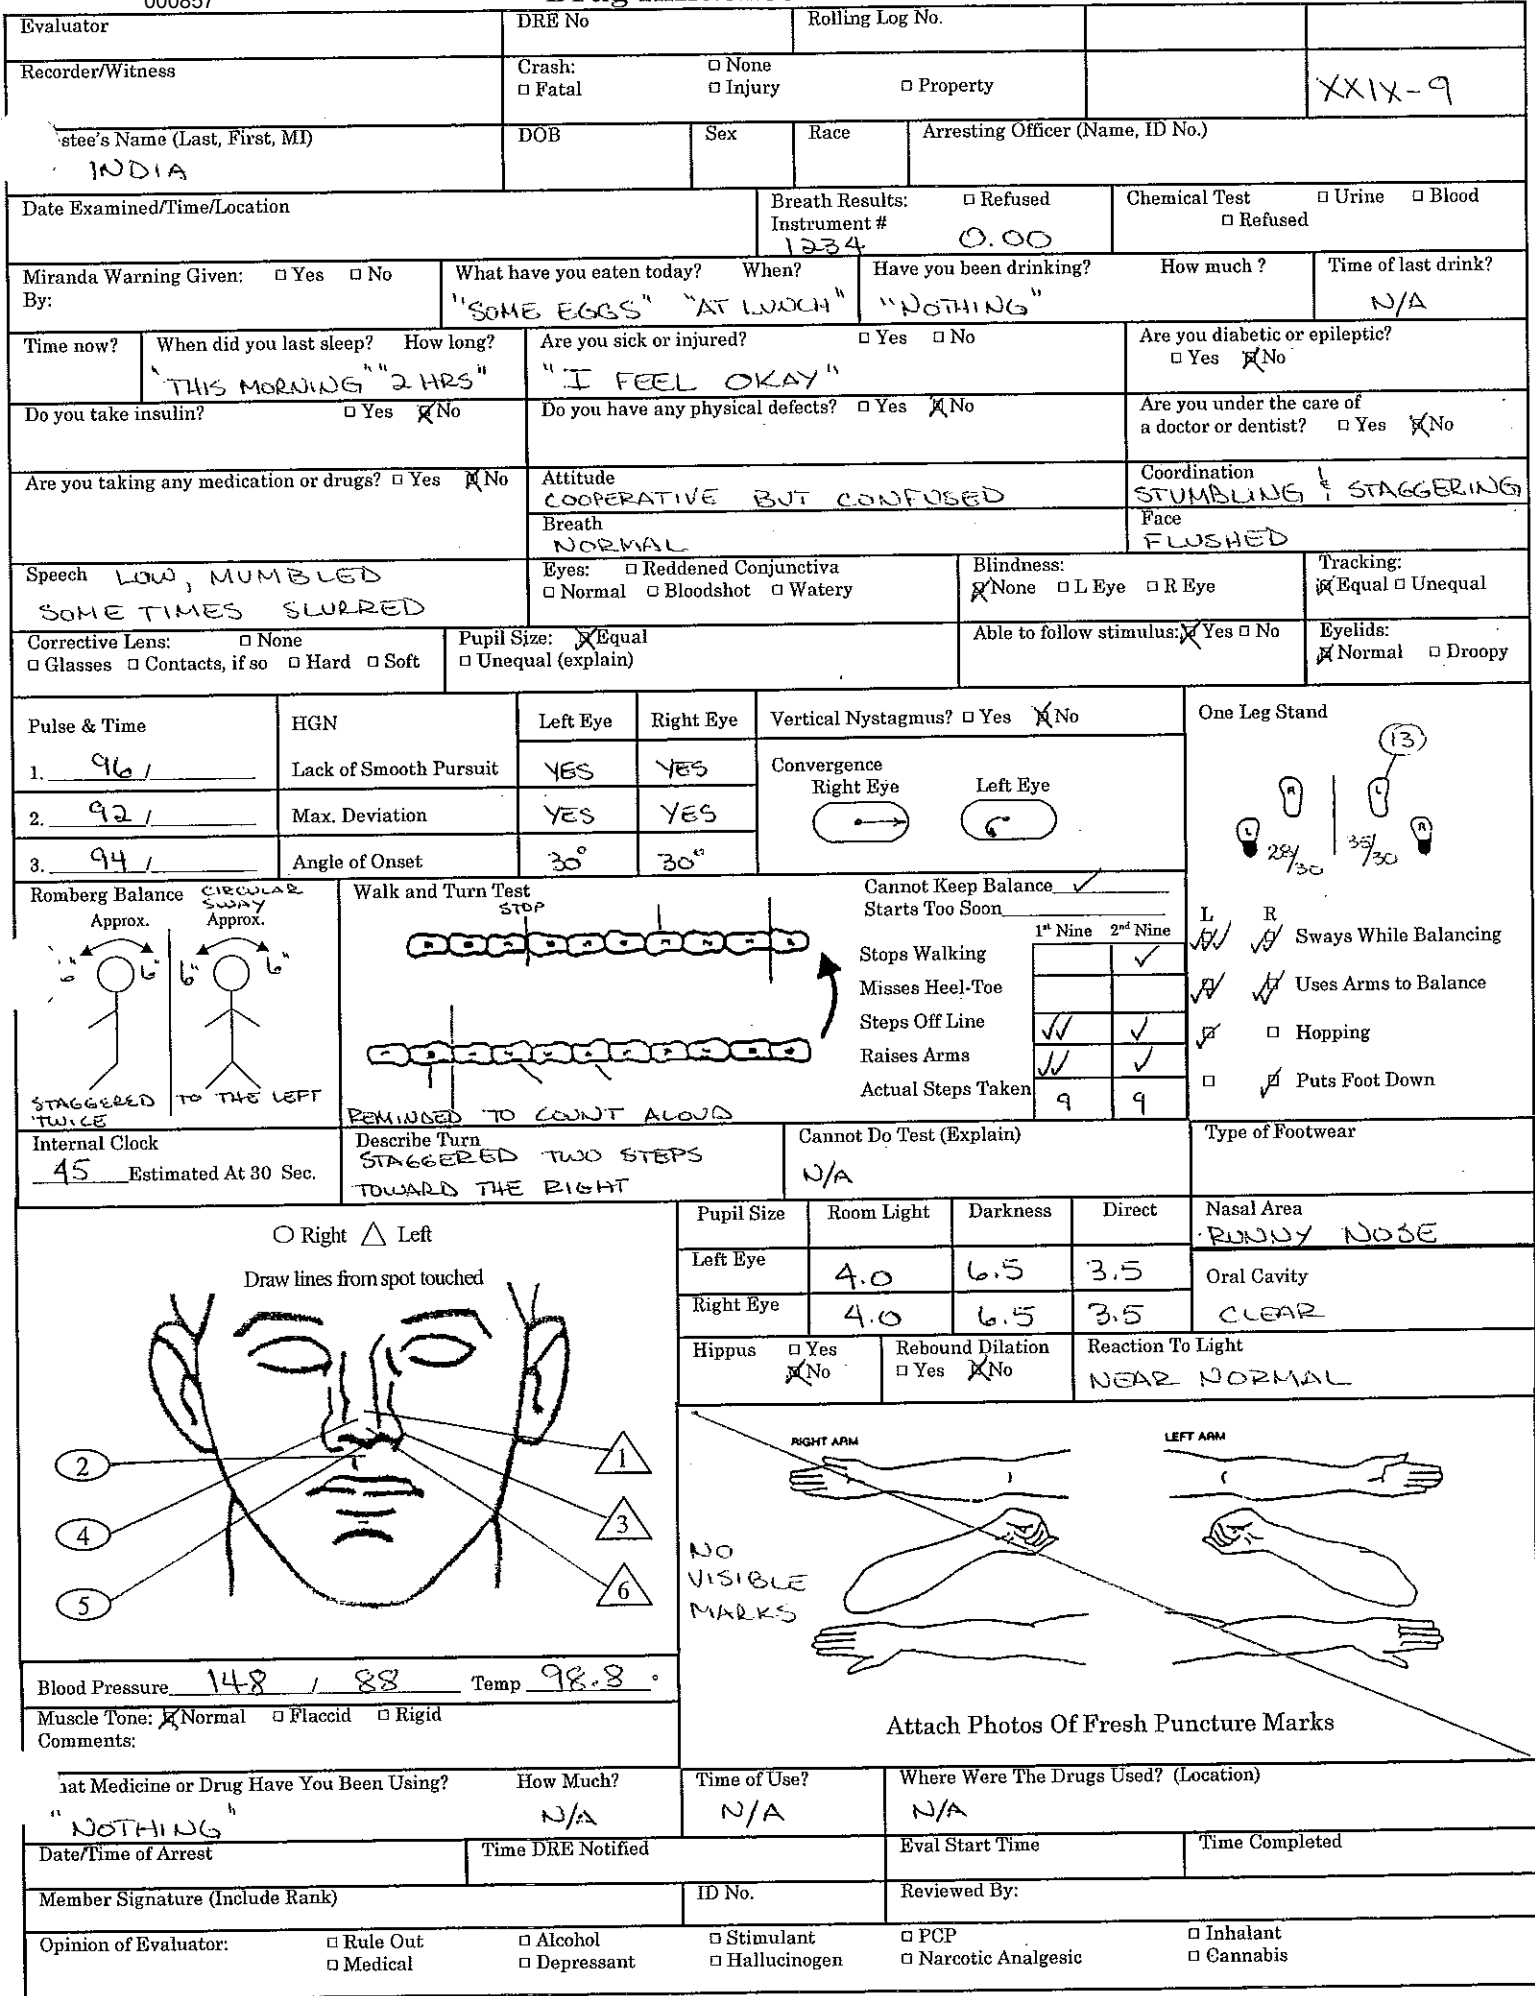 000857
Evaluator
DRE No
Rolling Log No.
Recorder/Witness
Crash: □ None
□ Fatal □ Injury □ Property
XXIX-9
stee's Name (Last, First, MI)
INDIA
DOB
Sex
Race
Arresting Officer (Name, ID No.)
Date Examined/Time/Location
Breath Results: □ Refused
Instrument #
1234 0.00
Chemical Test □ Urine □ Blood
□ Refused
Miranda Warning Given: □ Yes □ No
By:
What have you eaten today? When?
"SOME EGGS" "AT LUNCH"
Have you been drinking? How much ?
"NOTHING"
Time of last drink?
N/A
Time now?
When did you last sleep? How long?
"THIS MORNING" "2 HRS"
Are you sick or injured? □ Yes □ No
"I FEEL OKAY"
Are you diabetic or epileptic?
□ Yes ☒ No
Do you take insulin? □ Yes ☒ No
Do you have any physical defects? □ Yes ☒ No
Are you under the care of
a doctor or dentist? □ Yes ☒ No
Are you taking any medication or drugs? □ Yes ☒ No
Attitude
COOPERATIVE BUT CONFUSED
Coordination
STUMBLING & STAGGERING
Breath
NORMAL
Face
FLUSHED
Speech LOW, MUMBLED
SOME TIMES SLURRED
Eyes: □ Reddened Conjunctiva
□ Normal □ Bloodshot □ Watery
Blindness:
☒ None □ L Eye □ R Eye
Tracking:
☒ Equal □ Unequal
Corrective Lens: □ None
□ Glasses □ Contacts, if so □ Hard □ Soft
Pupil Size: ☒ Equal
□ Unequal (explain)
Able to follow stimulus: ☒ Yes □ No
Eyelids:
☒ Normal □ Droopy
Pulse & Time
1. 96 /
2. 92 /
3. 94 /
HGN Left Eye Right Eye
Lack of Smooth Pursuit YES YES
Max. Deviation YES YES
Angle of Onset 30° 30°
Vertical Nystagmus? □ Yes ☒ No
Convergence
Right Eye Left Eye
One Leg Stand
13
R L
L R
28/30 35/30
Romberg Balance CIRCULAR
SWAY
Approx. Approx.
6" 6" 6" 6"
STAGGERED TO THE LEFT
TWICE
Walk and Turn Test
STOP
REMINDED TO COUNT ALOUD
Cannot Keep Balance ✓
Starts Too Soon
1st Nine 2nd Nine
Stops Walking ✓
Misses Heel-Toe
Steps Off Line ✓✓ ✓
Raises Arms ✓✓ ✓
Actual Steps Taken 9 9
L R
Sways While Balancing
Uses Arms to Balance
Hopping
Puts Foot Down
Internal Clock
45 Estimated At 30 Sec.
Describe Turn
STAGGERED TWO STEPS
TOWARD THE RIGHT
Cannot Do Test (Explain)
N/A
Type of Footwear
○ Right △ Left
Draw lines from spot touched
2
4
5
1
3
6
Pupil Size Room Light Darkness Direct
Left Eye 4.0 6.5 3.5
Right Eye 4.0 6.5 3.5
Nasal Area
RUNNY NOSE
Oral Cavity
CLEAR
Hippus □ Yes
☒ No
Rebound Dilation
□ Yes ☒ No
Reaction To Light
NEAR NORMAL
RIGHT ARM LEFT ARM
NO
VISIBLE
MARKS
Attach Photos Of Fresh Puncture Marks
Blood Pressure 148 / 88 Temp 98.8 °
Muscle Tone: ☒ Normal □ Flaccid □ Rigid
Comments:
hat Medicine or Drug Have You Been Using? How Much?
"NOTHING" N/A
Time of Use?
N/A
Where Were The Drugs Used? (Location)
N/A
Date/Time of Arrest
Time DRE Notified
Eval Start Time
Time Completed
Member Signature (Include Rank)
ID No.
Reviewed By:
Opinion of Evaluator: □ Rule Out □ Alcohol □ Stimulant □ PCP □ Inhalant
□ Medical □ Depressant □ Hallucinogen □ Narcotic Analgesic □ Cannabis